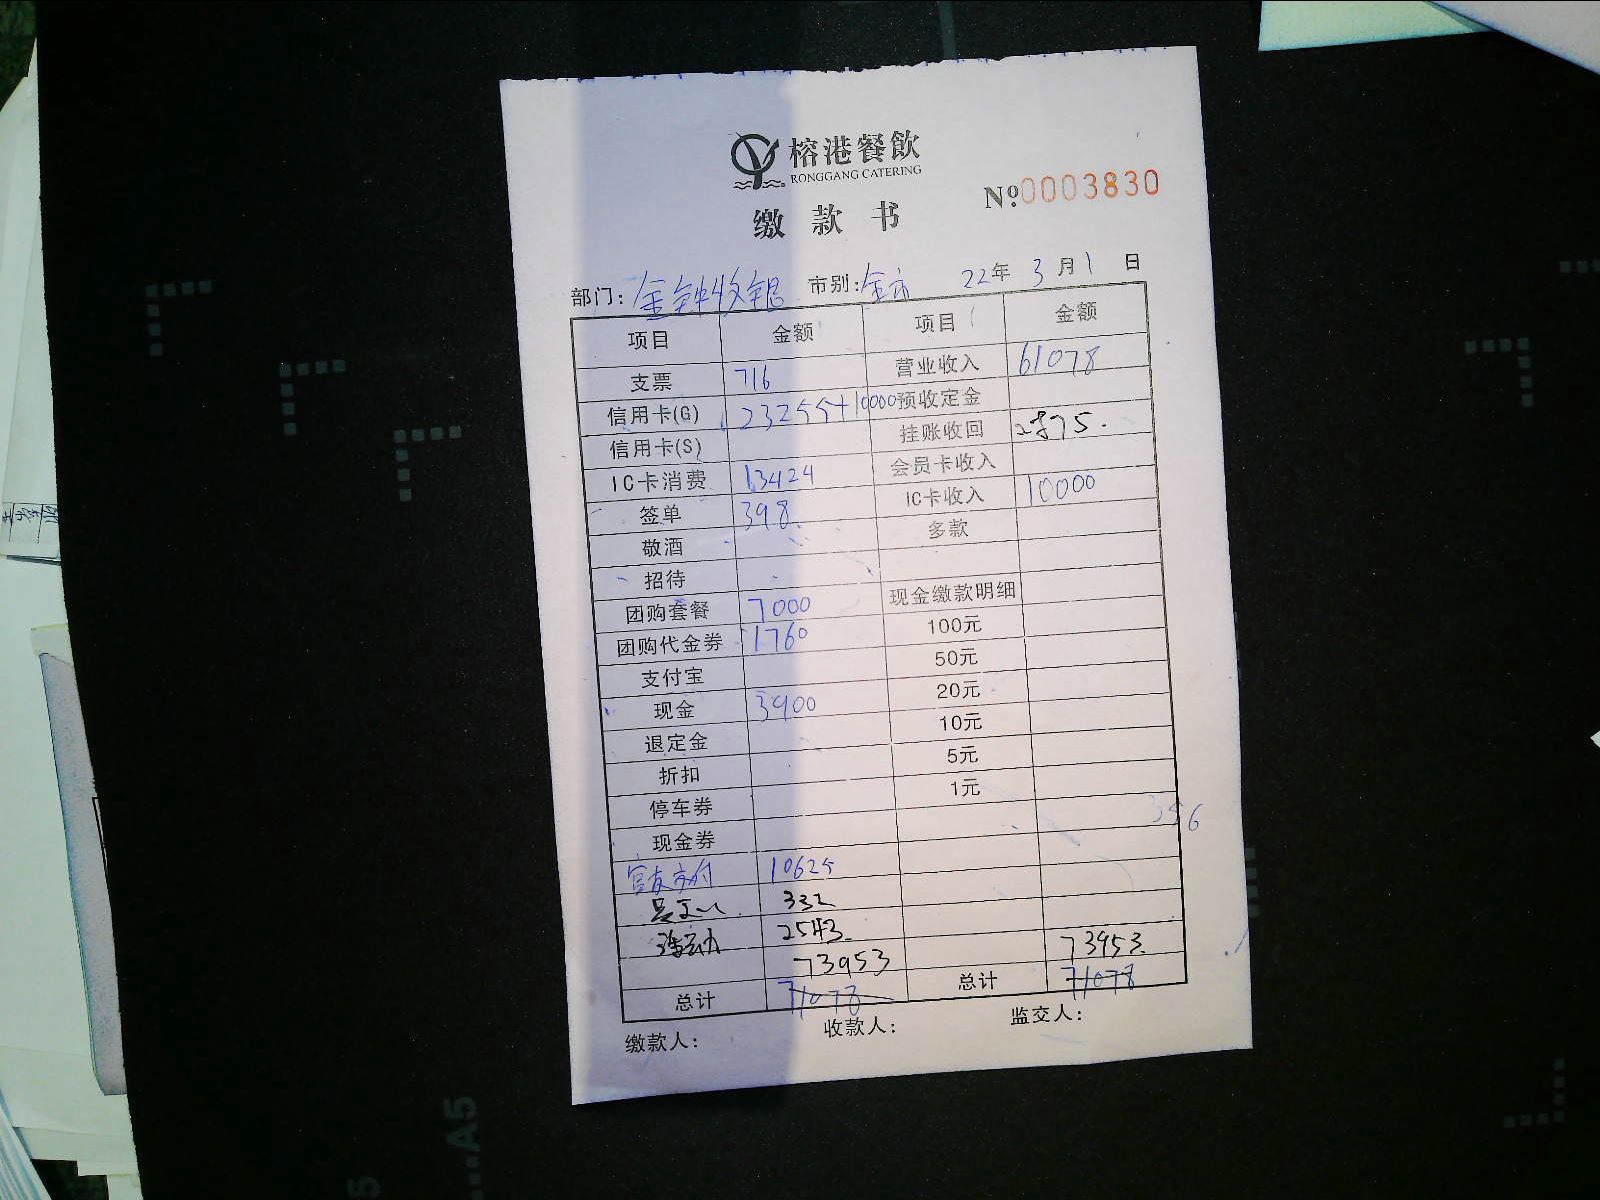 榕港餐飲
RONGGANG CATERING
№0003830
缴款书
部门：金钟收银 市别：全市 22年3月1日
项目 金额 项目 金额
支票 716 营业收入 61078
信用卡(G) 23255+10000 预收定金
信用卡(S) 挂账收回 2875.
IC卡消费 13424 会员卡收入
签单 398. IC卡收入 10000
敬酒 多款
招待
团购套餐 7000 现金缴款明细
团购代金券 1760 100元
支付宝 50元
现金 3900 20元
退定金 10元
折扣 5元
停车券 1元
现金券 356
10625
332
2543.
73953 73953.
总计 71078 总计 71078
缴款人： 收款人： 监交人：
A5